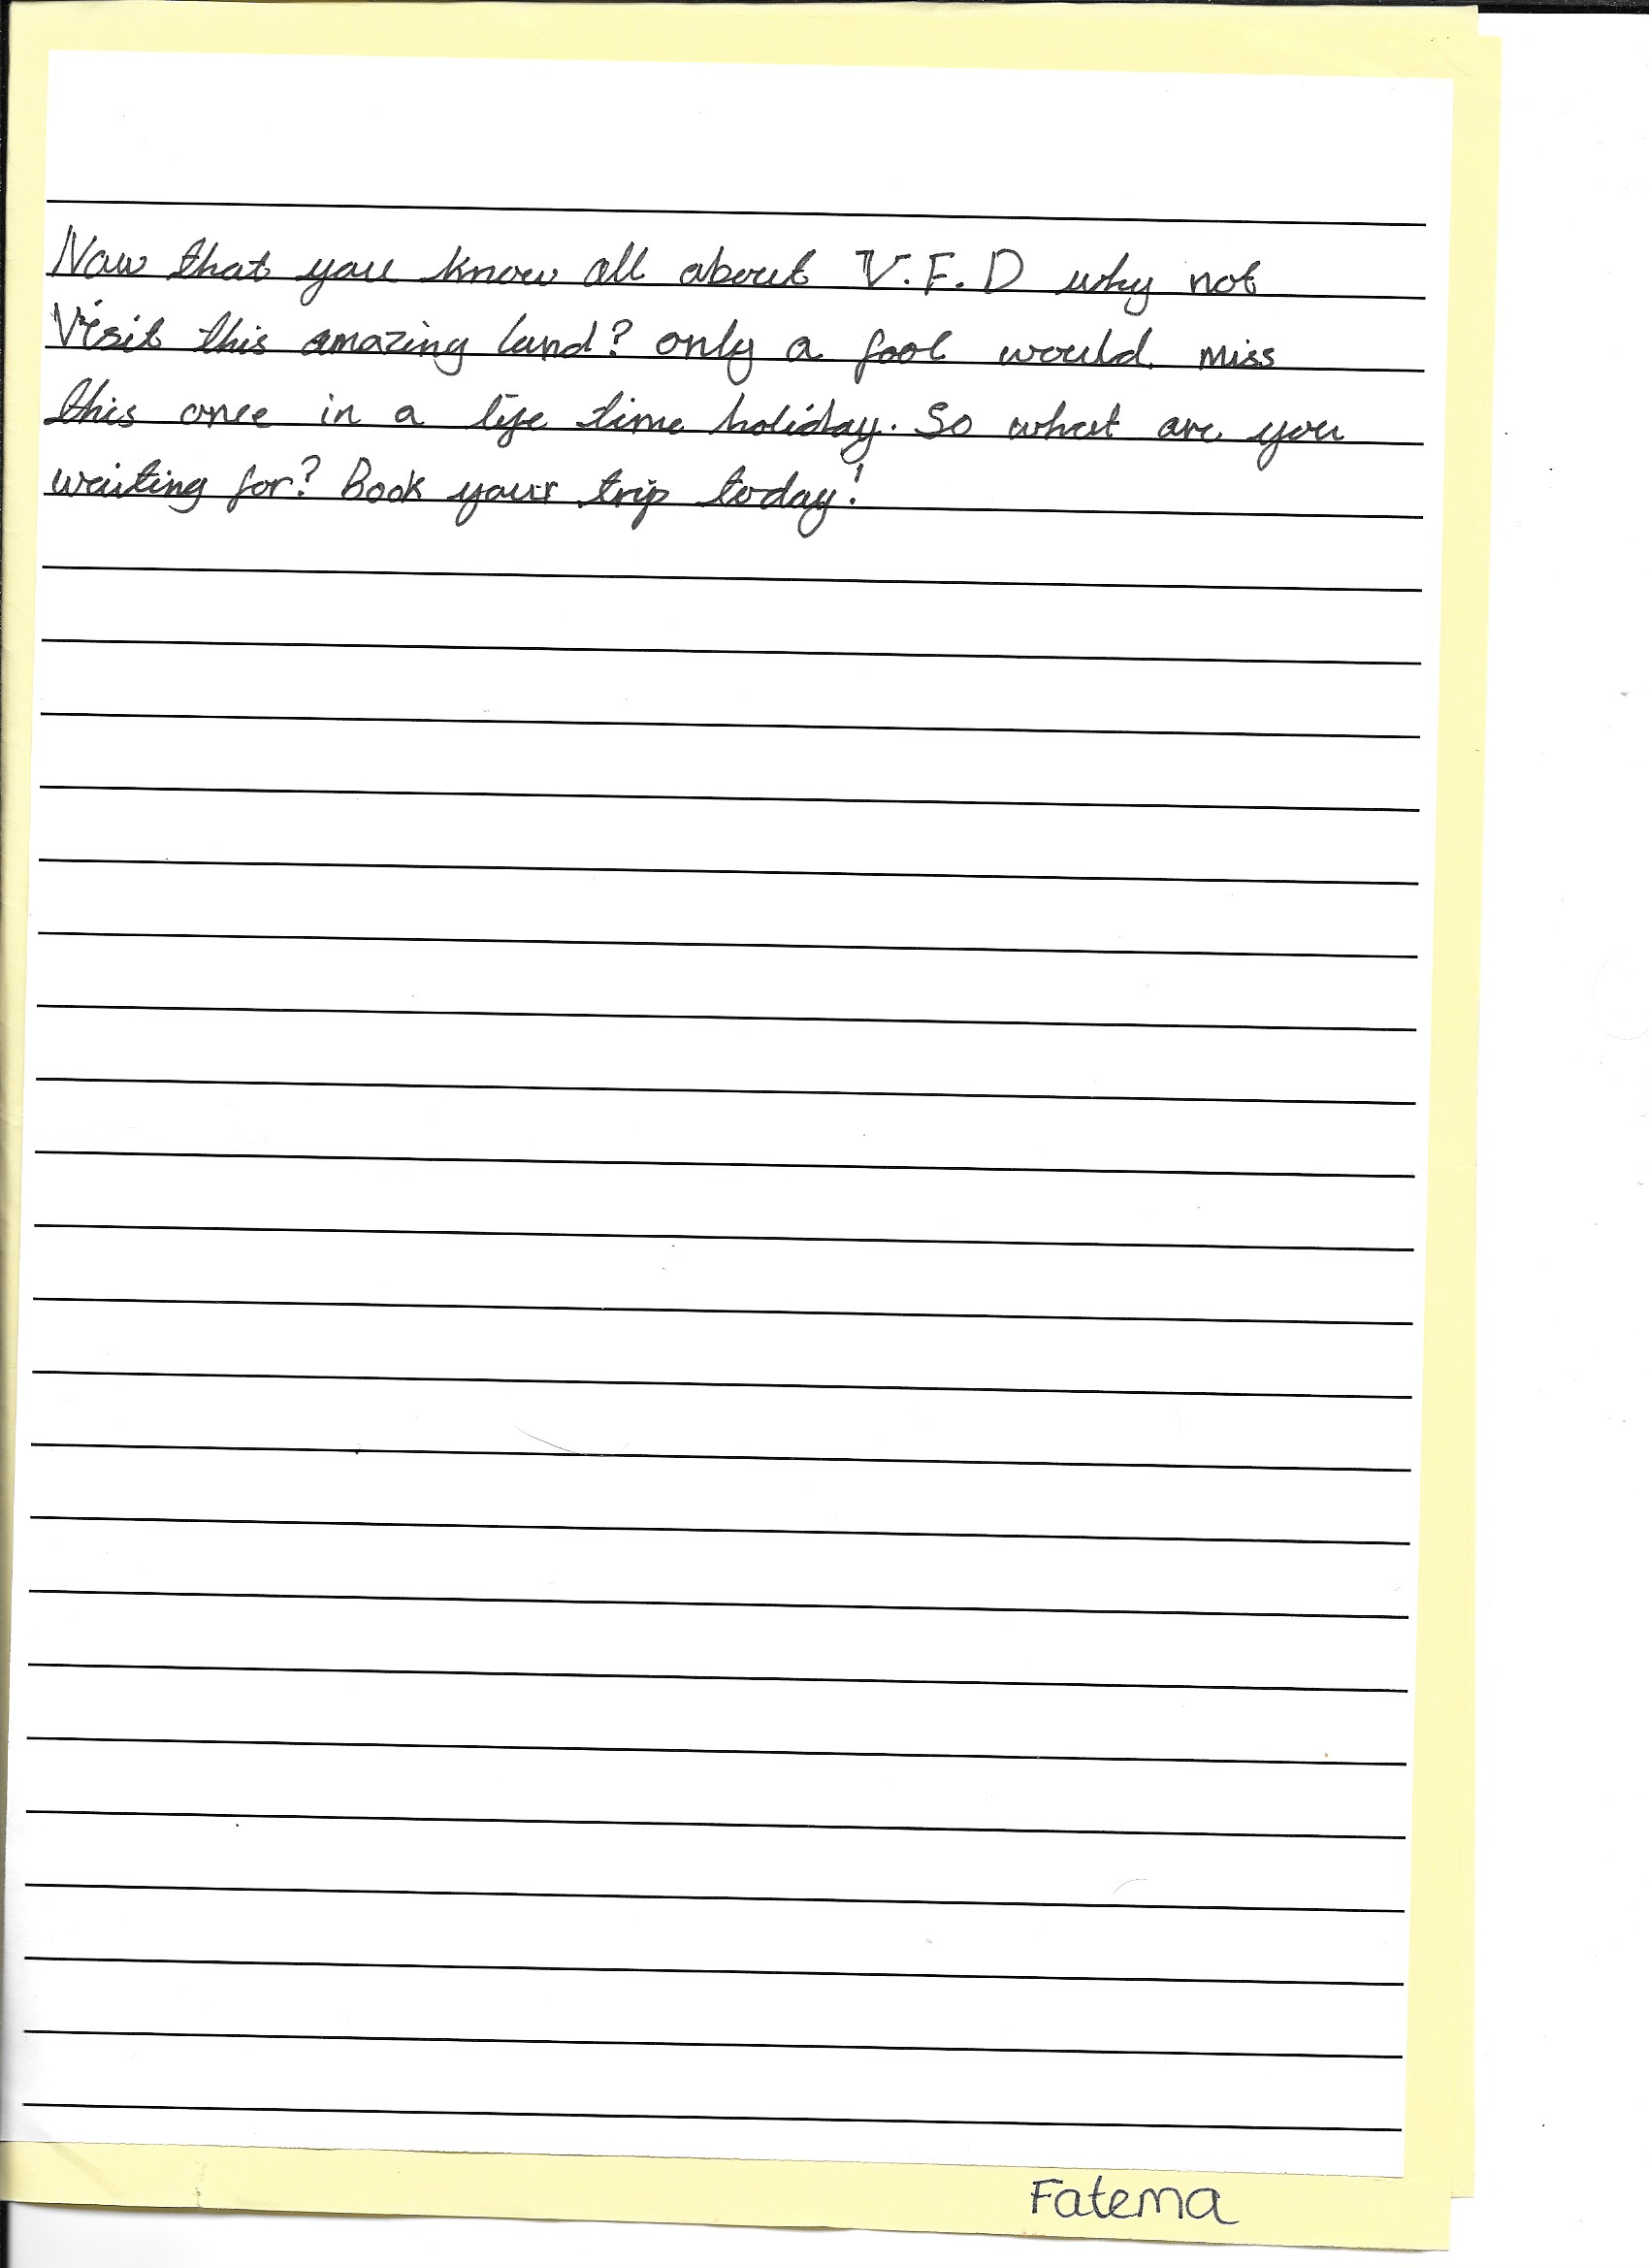 Now that you know all about V.F.D why not
Visit this amazing land? only a fool would miss
this once in a life time holiday. So what are you
waiting for? Book your trip today!
Fatema